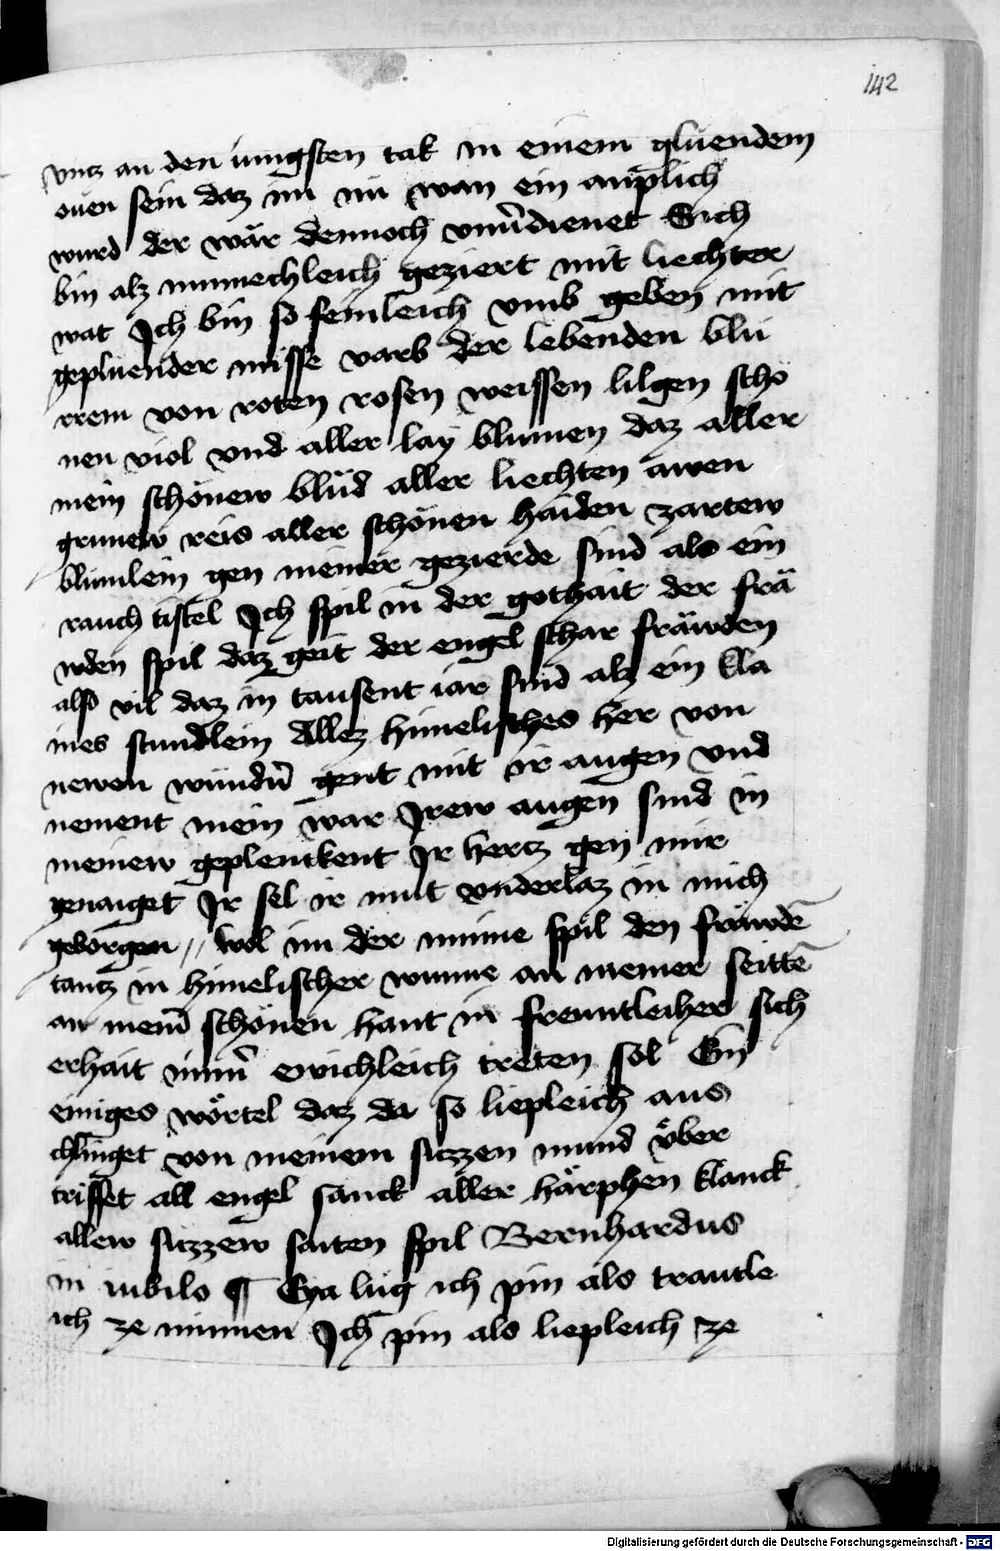 142
vntz an den iungsten tak in einem gluendem
ouen sein daz im nu wan ein anplich
wurd der wär dennoch vnuͦdienet Sich
bin alz minnechleich geziert mit liechter
wat Ich bin so feinleich vmb geben mit
gepluender misse varb der lebenden blu
rrem von roten rosen weissen lilgen scho
nen viol vnd aller lay blumen daz aller
mein schönew blüd aller liechten awen
grunew reis aller schönen haiden zartew
blumlein gen meiner gezierde sind als ein
rauch tistel Ich spil in der gothait der frä
wden spil daz geit der engel schar fräwden
also vil daz in tausent iar sind alz ein kla
ines stundlein Allez himelisches her von
newen wundn̄ gent mit ir augen vnd
nement mein war Irew augen sind in
meinew geplenkent Ir hertz gen mir
genaiget Ir sel ir mut vnderlaz in mich
geborgen // wol im der minne spil den fräwdē
tantz in himelischer wunne an meiner seittē
an meīn schönen hant in freuntleiher sich
erhait imm̄ ewichleich treten sol Ein
einiges wörtel daz da so liepleich aus
chlinget von meinem suzzen mund v̈ber
triffet all engel sanck aller härphen klanck
allew suzzew saiten spil Bernhardus
in iubilo ¶ Eya lug ich pin als trautle
ich ze minnen Ich pin als liepleich ze
Digitalisierung gefördert durch die Deutsche Forschungsgemeinschaft - DFG